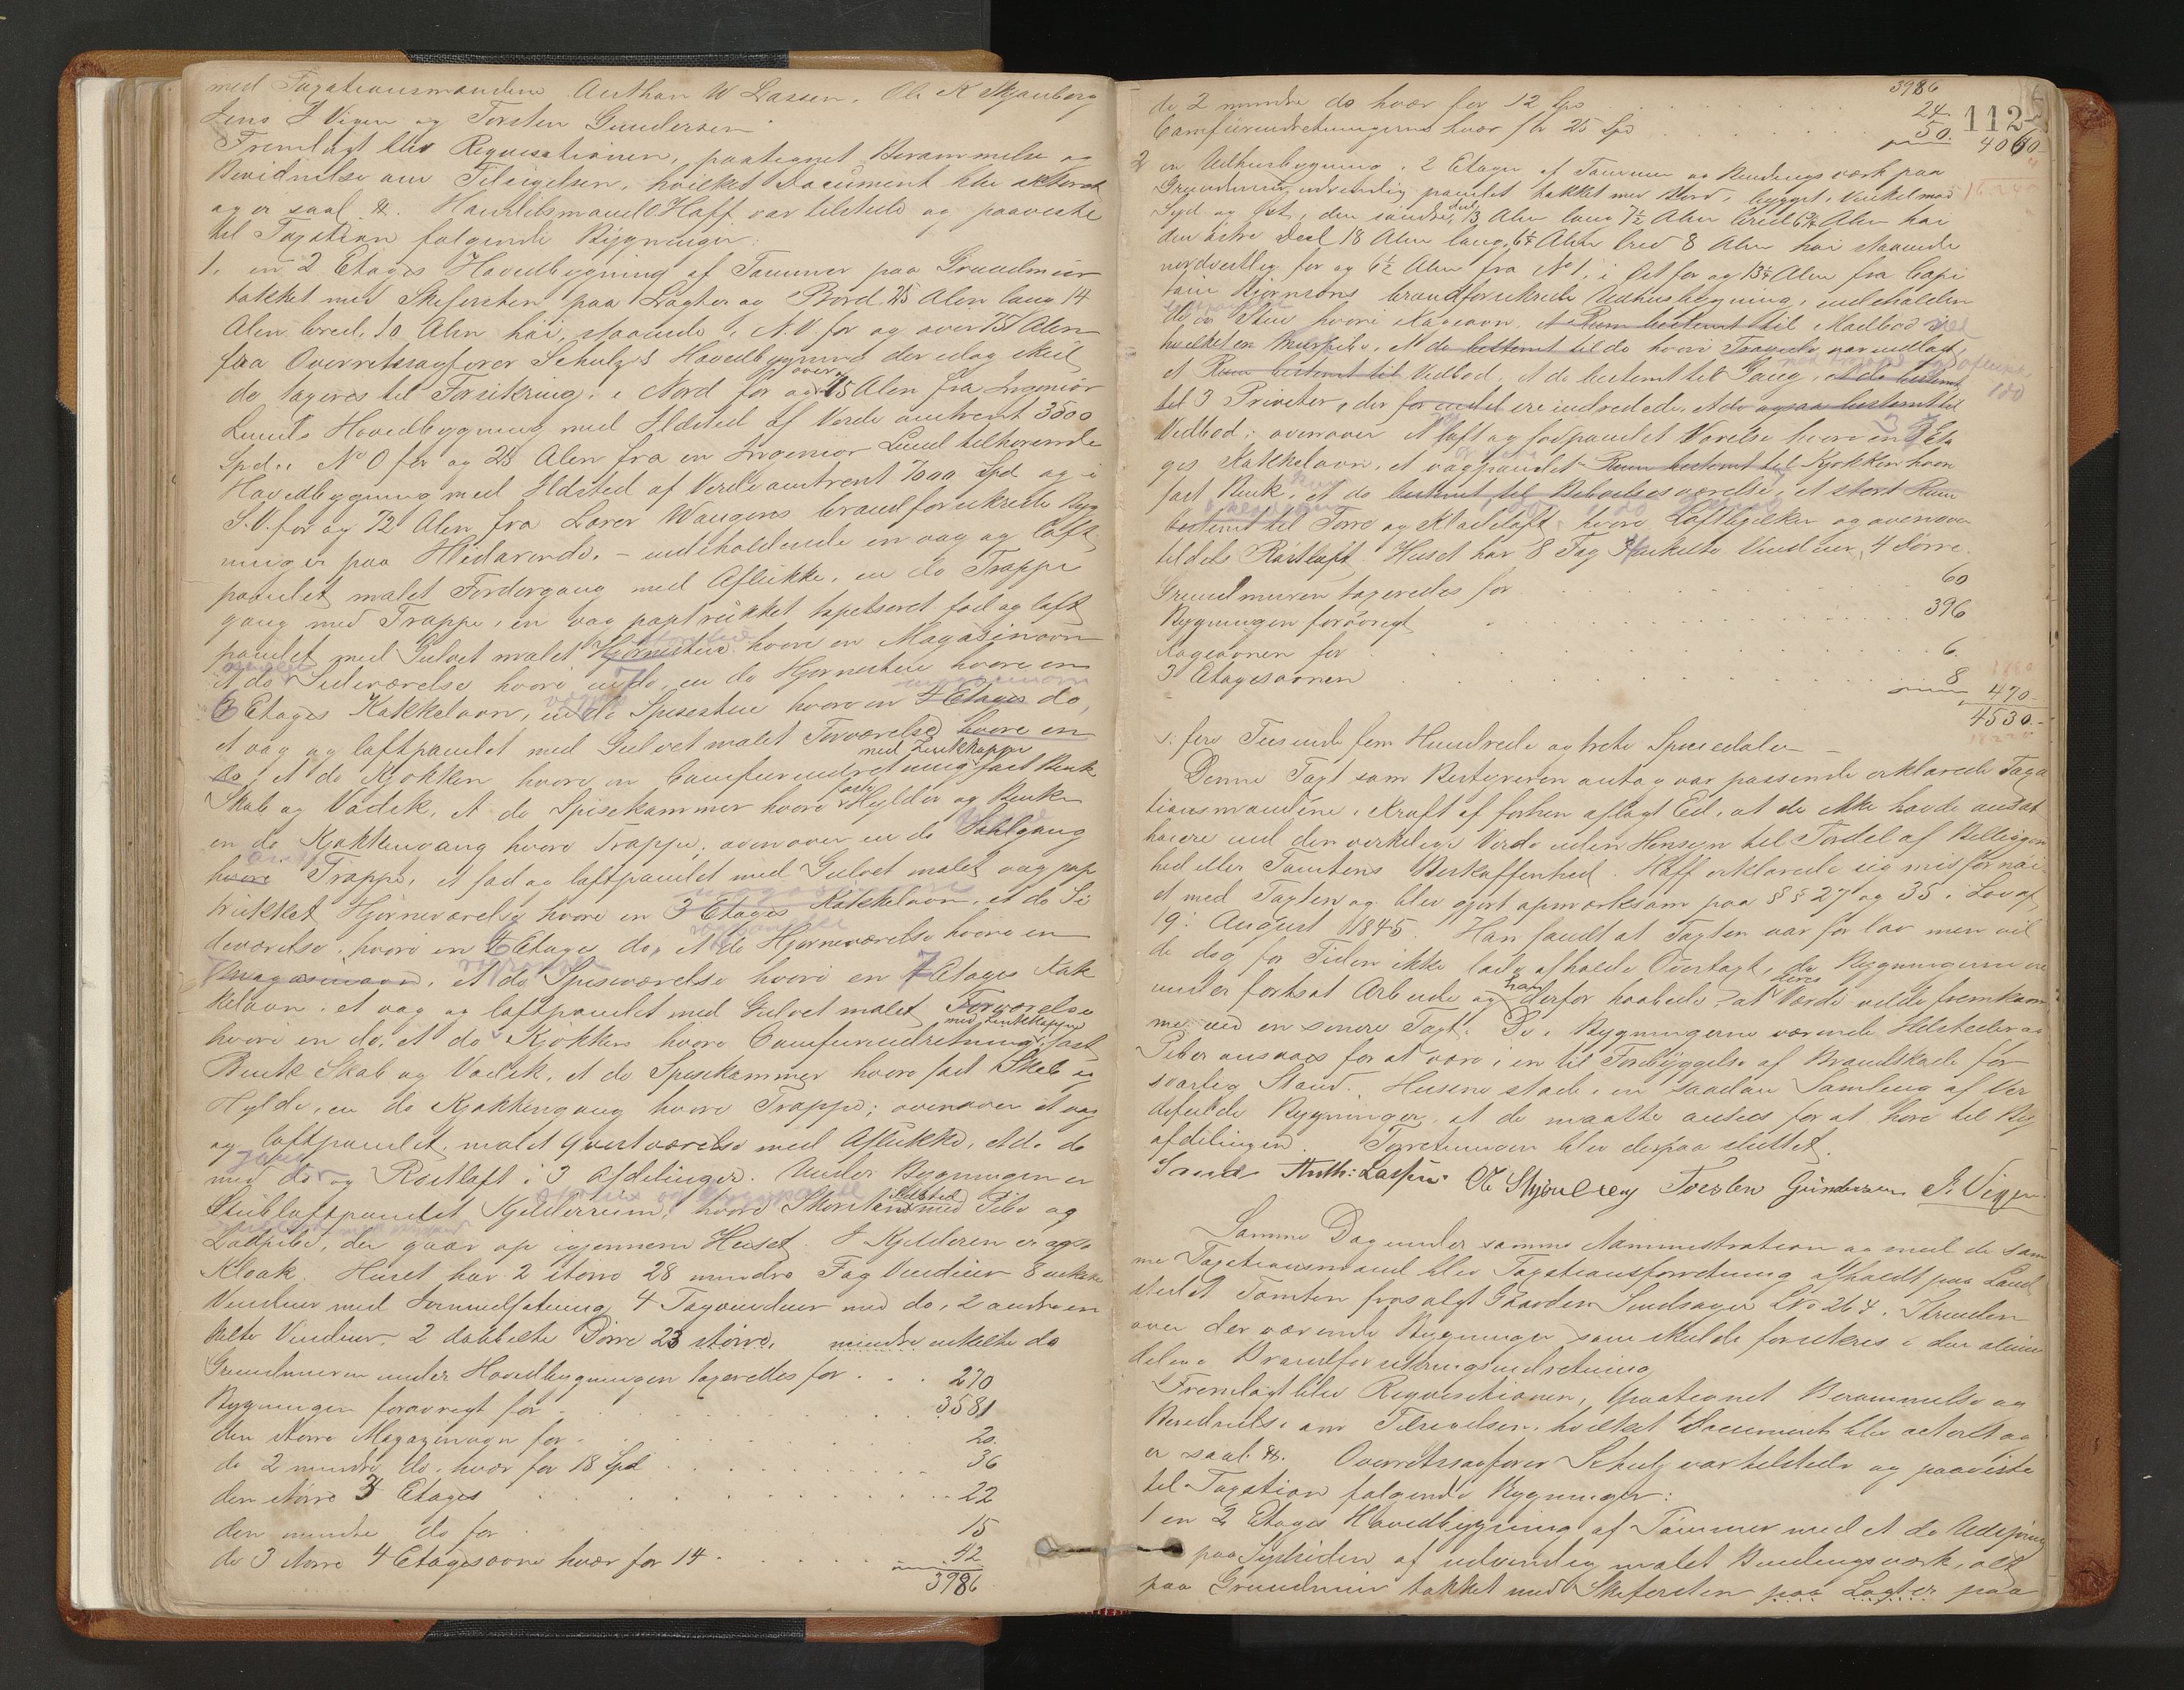 med Taxationsmændene Anthon W Lassen, Ole K Skjauberg
Jens J Vigen og Torsten Gundersen
Fremlagt blev Reqvisitionen, paategnet Berammelse og
Bevidnelse om Tilsigelsen, hvilket Document blev akteret
og er saal. &. Handelsmand O Haff var tilstede og paaviste
til Taxation følgende Bygninger:
1, en 2 Etages Hovedbygning af Tømmer paa Grundmuur
takket med Skifersten paa Lægter og Bord 25 Alen lang 14
Alen bred, 10 Alen høi, staaende i N.V. for og over 75 Alen
fra Overretssagfører Schulz's Hovedbygning der idag skul
de taxeres til Forsikring, i Nord for og over 75 Alen fra Ingeniør
Lunds Hovedbygning med Ildsted af Værdi omtrent 3500
Spd., i N O for og 23 Alen fra en Ingeniør Lund tilhørende
Hovedbygning med Ildsted af Værdi omtrent 7000 Spd og i
S.V. for og 72 Alen fra Lærer Waagens brandforsikrede Byg
ninger paa Hidarende. - indeholdende en væg og loft
panelet malet Fordørgang med Aflukke, en do Trappe
gang med Trappe, en væg paptrukket tapetseret fod og loft
panelet med Gulvet malet Hjørnestue hvori en Magasinovn
et do Sideværelse hvori en do, en do Hjørnestue hvori en
3 Etages Kakkelovn, en do Spisestue hvori en 4 Etages do,
et væg og loftpanelet med Gulvet malet Forværelse hvori en
do, et do Kjøkken hvori en Comfurindretning med Zinkkappe fast Bænk
Skab og Vadsk, et do Spisekammer hvori faste Hylder og Bænke
en do Kjøkkengang hvori Trappe; ovenover en do Sahlgang
hvori Trappe, et fod og loftpanelet med Gulvet malet væg pap
trukket Hjørneværelse hvori en 3 Etages Kakkelovn, et do Si
deværelse hvori en 4 Etages do, et do Hjørneværelse hvori en
Magasinovn, et do Spiseværelse hvori en 7 Etages Kak
kelovn, et væg og loftpanelet med Gulvet malet Forværelse
hvori en do, et do Kjøkken hvori Comfurindretning med Zinkkappe fast
Bænk Skab og Vadsk, et do Spisekammer hvori fast Skab og
Hylde, en do Kjøkkengang hvori Trappe; ovenover et væg
og loftpanelet malet Qvistværelse med Aflukke, et do do
med do og Røstloft i 3 Afdelinger. Under Bygningen er
Stubloftpanelet Kjelderrum, hvori Skorsten Ildsted med Pibe og
Lodpibe, der gaar op igjennem Huset. I Kjelderen er ogsaa
Kloak. Huset har 2 større 28 mindre Fag Vinduer 8 enkelte
Vinduer med Jernindfatning 4 Tagvinduer med do, 2 andre en
kelte Vinduer, 2 dobbelte Dørre 23 større, mindre enkelte do
Grundmuren under Hovedbygningen taxeredes for . . . 270
Bygningen forøvrigt for . . . 3581
den større Magazinovn for . . . 20
de 2 mindre do. hver for 18 Spd . . . 36
den større 3 Etages . . . 22
den mindre do for . . . 15
de 3 større 4 Etagesovne hver for 14 . . . 42
3986
3986
de 2 mindre do hver for 12 Spd . . . 24
Comfurindretningerne hver for 25 Spd . . . 50.
112
4060
2 en Udhusbygning i 2 Etager af Tømmer og Bindingsværk paa
Grundmuur, udvendig panelet takket med Bord, bygget i Vinkel mod
Syd og Øst, den søndre Deel 13 Alen lang 7½ Alen bred 6¾ Alen høi
den østre Deel 18 Alen lang, 6¼ Alen bred 8 Alen høi staaende
nordvestlig for og 6½ Alen fra No 1, i Øst for og 13¼ Alen fra Capi
tain Bjørnsons brandforsikrede Udhusbygning, indeholden
de en Stue hvori Kageovn, et Rum bestemt til Madbod i
hvilket en Muurpibe, et do bestemt til do hvori
et Rum bestemt til Vedbod, et do bestemt til Gang, et do bestemt
til 3 Priveter, der for endel ere indredede, et do ogsaa bestemt til
Vedbod; ovenover et loft og fodpanelet Værelse hvori en 3 Eta
ges Kakkelovn, et vægpanelet Rum bestemt til Kjøkken hvori
fast Bænk, et do bestemt til Beboelsesværelse, et stort Rum
bestemt til Tørre og Klædeloft, hvori Loftbjelker og ovenover
tildels Røstloft. Huset har 8 Fag enkelte Vinduer, 4 Dørre.
Grundmuren taxeredes for . . . 60
Bygningen forøvrigt . . . 396
Kageovnen for . . . 6.
3 Etagesovnen . . . 8
470
4530.-
s: fire Tusinde fem Hundrede og trete Speciedaler -
Denne Taxt som Bestyreren antog var passende erklærede Taxa
tionsmændene i Kraft af forhen aflagt Ed, at de ikke havde ansat
høiere end den virkelige Værdi uden Hensyn til Fordel af Beliggen
hed eller Tomtens Beskaffenhed. Haff erklærede sig misfornøi
et med Taxten og blev gjort opmærksom paa §§ 27 og 35 i Lov af
19: August 1845. Han fandt at Taxten var for lav men vil
de dog for Tiden ikke lade afholde Overtaxt, da Bygningerne ere
under fortsat Arbeide og han derfor haabede at deres Værdi vilde fremkom
me ved en senere Taxt. De i Bygningerne værende Ildsteder og
Piber ansaaes for at være i en til Forebyggelse af Brandskade for
svarlig Stand. Husene stode i en saadan Samling af Vær
difulde Bygninger, at de maatte ansees for at høre til By
afdelingen. Forretningen blev derpaa sluttet.
Anth: Lassen Ole Skjauberg Torsten Gundersen J. Vigen
Samme Dag under samme Administration og med de sam
me Taxationsmænd blev Taxationsforretning afholdt paa Land
stedet Tomten frasolgt Gaarden L No 264 i Strinden
over der værende Bygninger som skulde forsikres i den almin
delige Brandforsikringsindretning
Fremlagt blev Reqvisitionen, paategnet Berammelse og
Bevidnelse om Tilsigelsen, hvilket Document blev acteret og
er saal. &. Overretssagfører Schulz var tilstede og paaviste
til Taxation følgende Bygninger:
1 en 2 Etages Hovedbygning af Tømmer med et do Udspring
paa Sydsiden af udvendig malet Bindingsværk, alt
paa Grundmuur takket med Skifersten paa Lægter paa